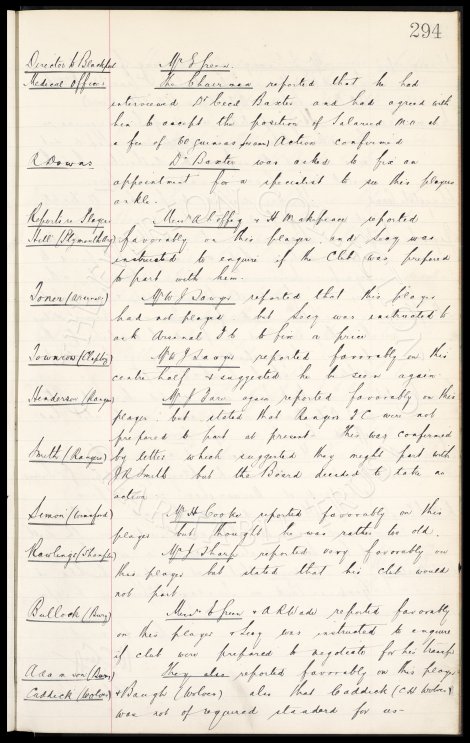 294
Director to Blackpool Mr E Green.
Medical Officer The Chairman reported that he had
interviewed Dr Cecil Baxter and had agreed with
him to accept the position of Salaried M.O. at
a fee of 60 guineas Action confirmed
R Downs Dr Baxter was asked to fix an
appointment for a specialist to see this players
ankle.
Reports re Players Messrs A Coffey & H Makepeace reported
Hill (Plymouth Arg) favorably on this player, and Secy was
instructed to enquire if the Club was prepared
to part with him.
Toner (Arsenal) Mr W J Sawyer reported that this player
had not played but Secy was instructed to
ask Arsenal F.C. to fix a price
Townrow (Clapton) Mr W J Sawyer reported favorably on this
centre half & suggested he be seen again.
Henderson (Rangers) Mr J again reported favorably on this
player, but stated that Rangers F.C. were not
prepared to part at present. This was confirmed
Smith (Rangers) by letter which suggested they might part with
J R Smith but the Board decided to take no
action
Simon Mr H Cooke reported favorably on this
player but thought he was rather too old.
Rawlings Mr J Sharp reported very favorably on
this player but stated that his club would
not part
Bullock (Bury) Messrs E Green & A R Wade reported favorably
on this player & Secy was instructed to enquire
if club were prepared to negotiate for his transfer
Adamson (Bury) They also reported favorably on this player
Caddick (Wolves) & Baugh (Wolves) also that Caddick (C.H. Wolves)
was not of required standard for us-